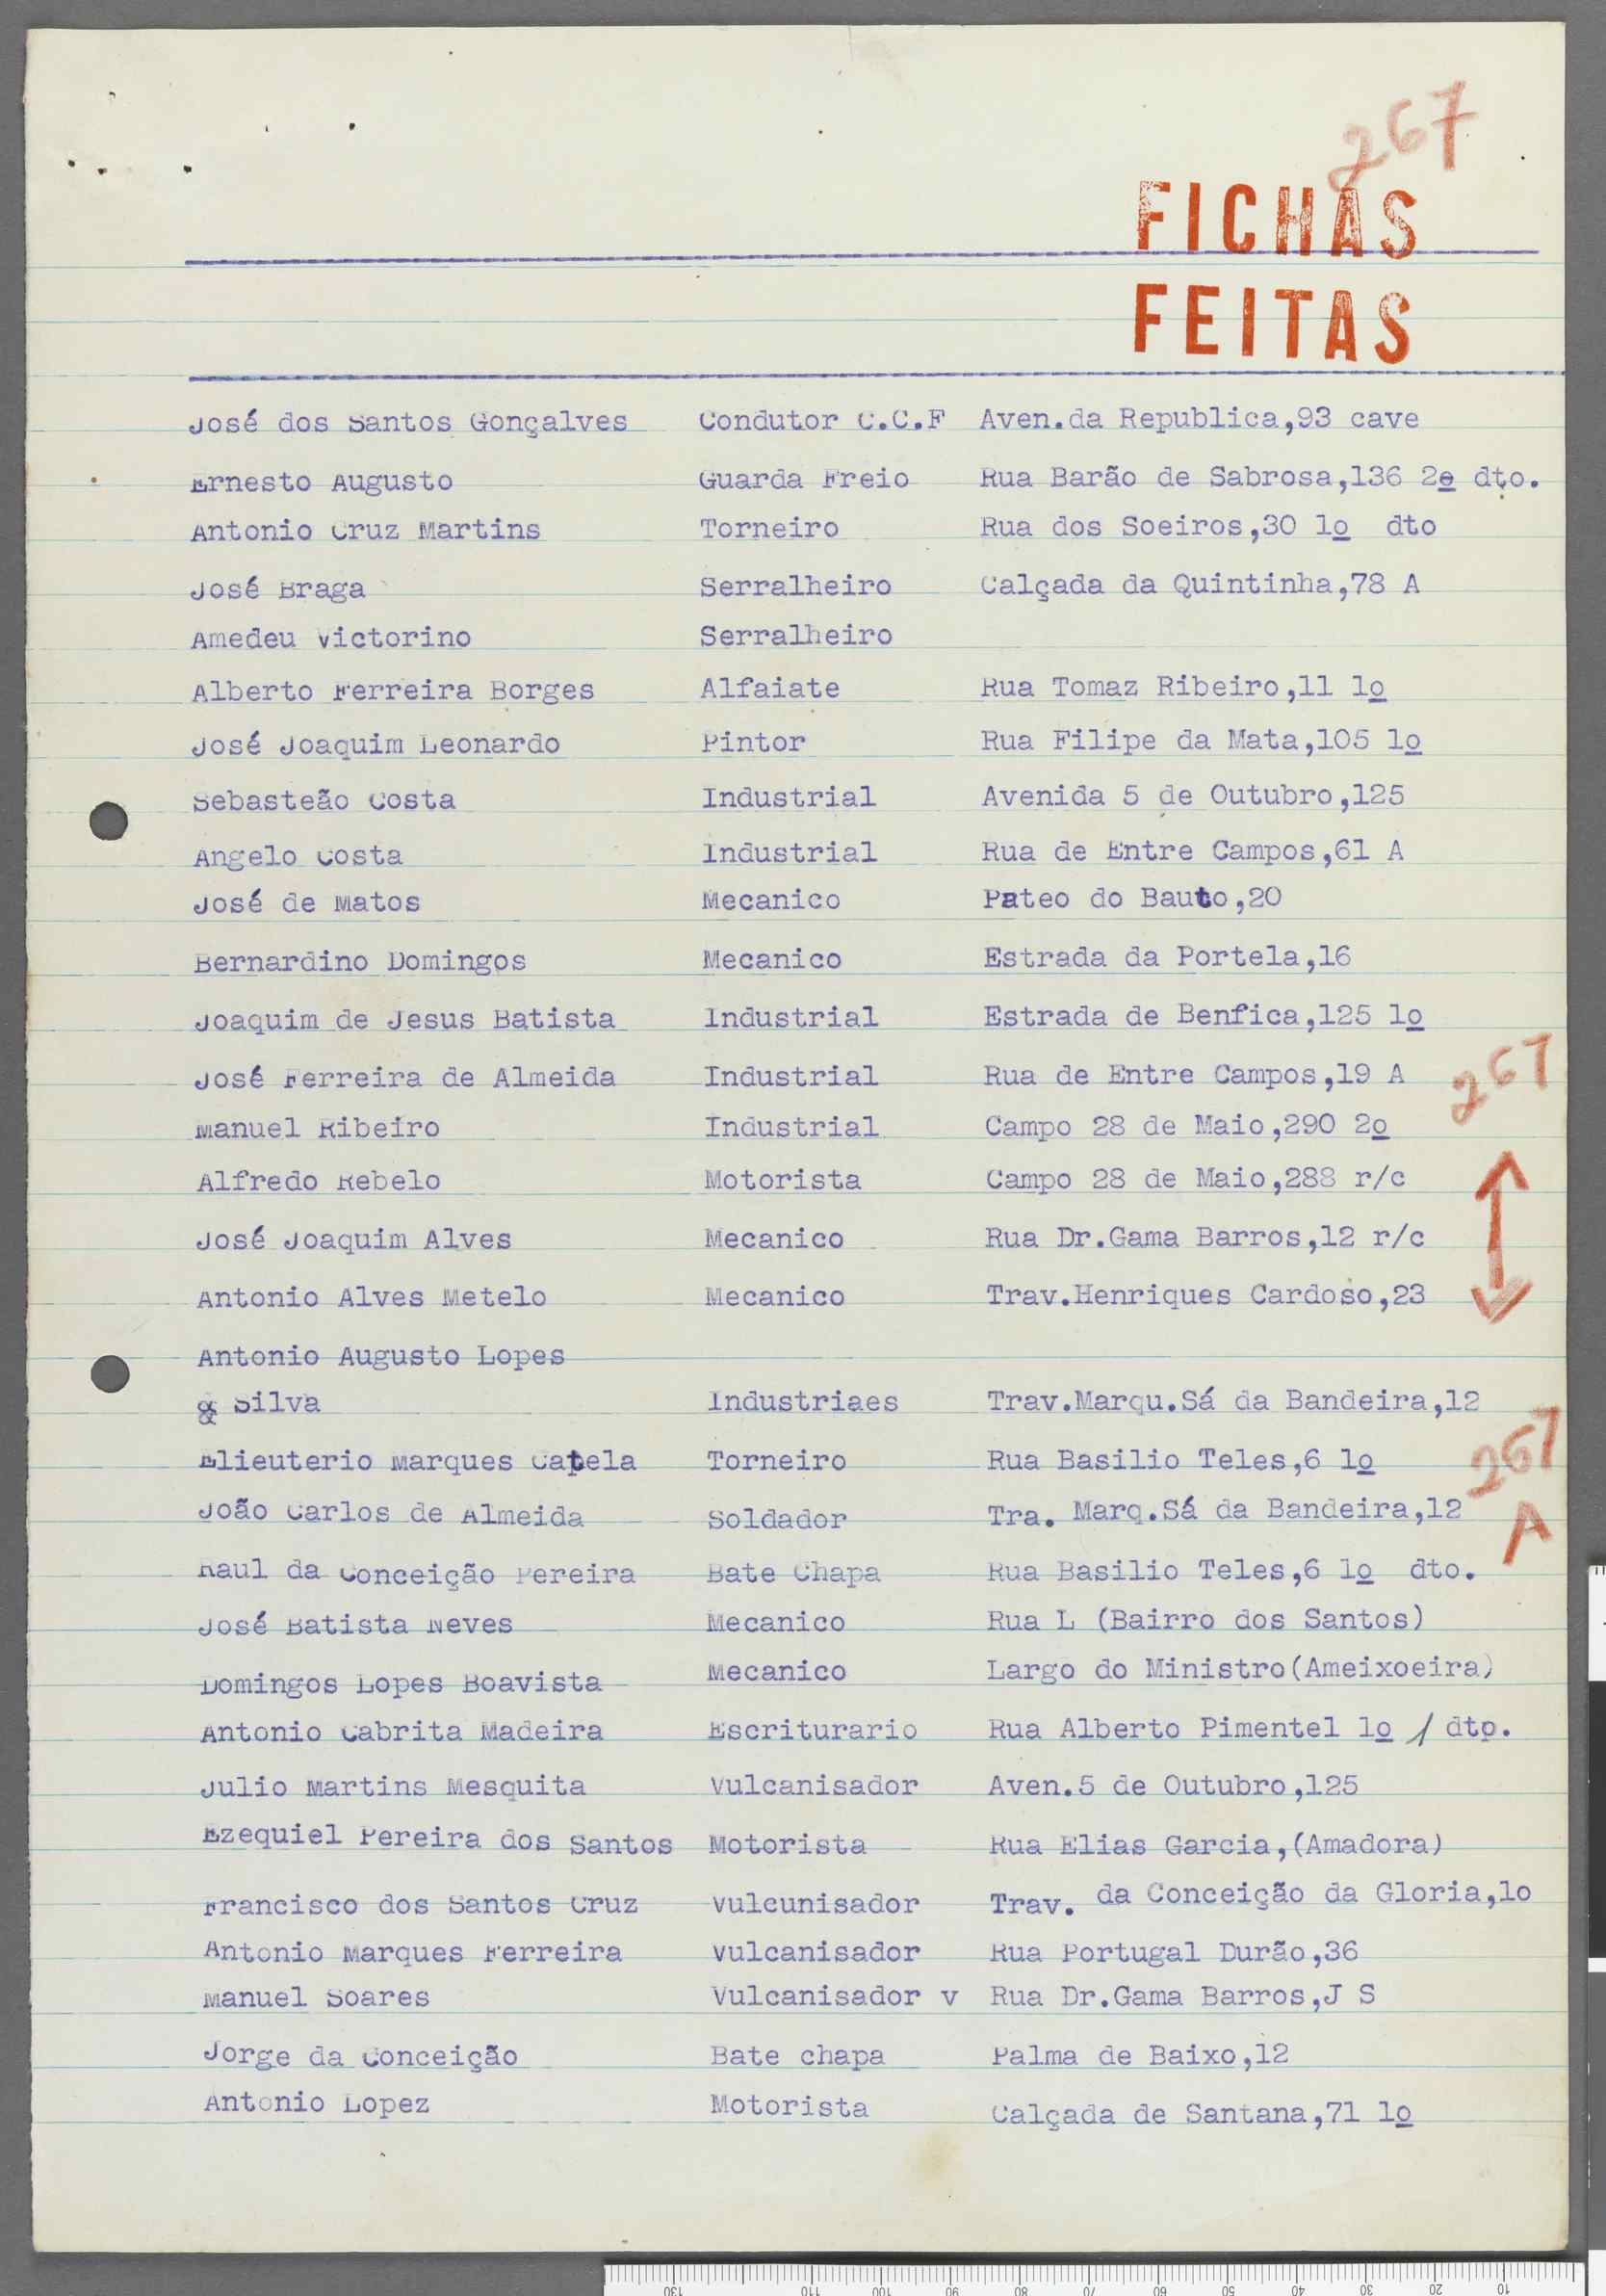 267
FICHAS
FEITAS
José dos Santos Gonçalves Condutor C.C.F Aven.da Republica,93 cave
Ernesto Augusto Guarda Freio Rua Barão de Sabrosa,136 2e dto.
Antonio Cruz Martins Torneiro Rua dos Soeiros,30 1o dto
José Braga Serralheiro Calçada da Quintinha,78 A
Amedeu Victorino Serralheiro
Alberto Ferreira Borges Alfaiate Rua Tomaz Ribeiro,11 1o
José Joaquim Leonardo Pintor Rua Filipe da Mata,105 1o
Sebasteão Costa Industrial Avenida 5 de Outubro,125
Angelo Costa Industrial Rua de Entre Campos,61 A
José de Matos Mecanico Pateo do Bauto,20
Bernardino Domingos Mecanico Estrada da Portela,16
Joaquim de Jesus Batista Industrial Estrada de Benfica,125 1o
José Ferreira de Almeida Industrial Rua de Entre Campos,19 A 267
Manuel Ribeiro Industrial Campo 28 de Maio,290 2o
Alfredo Rebelo Motorista Campo 28 de Maio,288 r/c
José Joaquim Alves Mecanico Rua Dr.Gama Barros,12 r/c
Antonio Alves Metelo Mecanico Trav.Henriques Cardoso,23
Antonio Augusto Lopes
& Silva Industriaes Trav.Marqu.Sá da Bandeira,12
Elieuterio Marques Catela Torneiro Rua Basilio Teles,6 1o 267
João Carlos de Almeida Soldador Tra. Marq.Sá da Bandeira,12 A
Raul da Conceição Pereira Bate Chapa Rua Basilio Teles,6 1o dto.
José Batista Neves Mecanico Rua L (Bairro dos Santos)
Domingos Lopes Boavista Mecanico Largo do Ministro(Ameixoeira)
Antonio Cabrita Madeira Escriturario Rua Alberto Pimentel 1o 1 dto.
Julio Martins Mesquita Vulcanisador Aven.5 de Outubro,125
Ezequiel Pereira dos Santos Motorista Rua Elias Garcia,(Amadora)
Francisco dos Santos Cruz Vulcunisador Trav. da Conceição da Gloria,1o
Antonio Marques Ferreira Vulcanisador Rua Portugal Durão,36
Manuel Soares Vulcanisador v Rua Dr.Gama Barros,J S
Jorge da Conceição Bate chapa Palma de Baixo,12
Antonio Lopez Motorista Calçada de Santana,71 1o
130 110 100 90 80 70 60 50 40 30 20 10